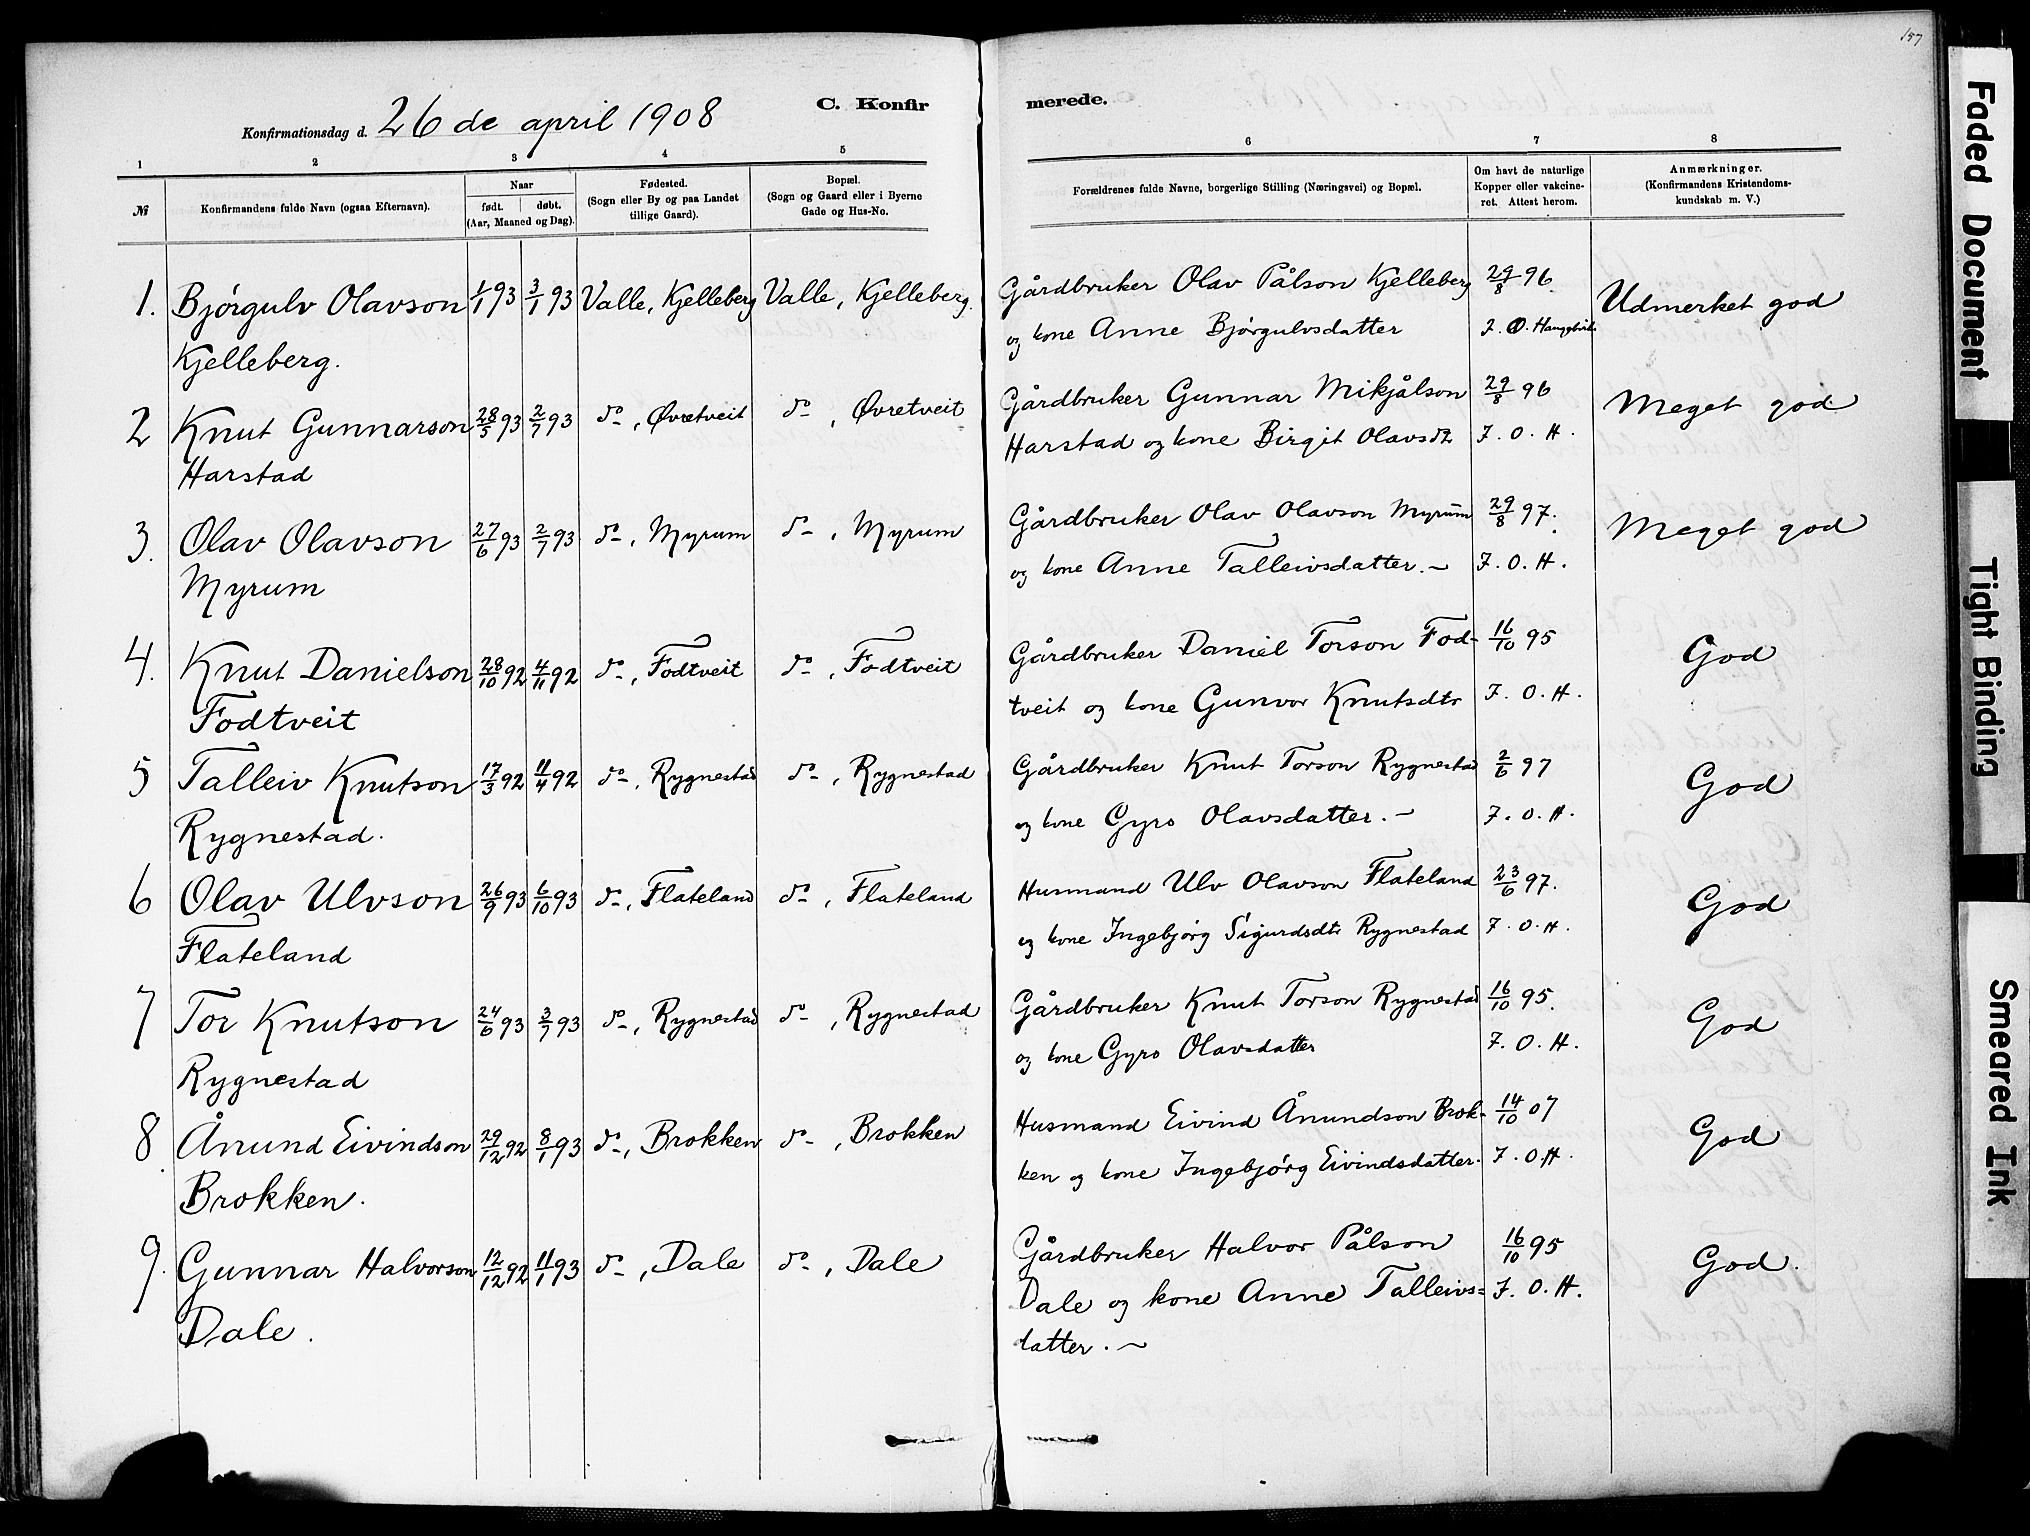 157
C. Konfirmerede.
Konfirmationsdag d. 26 de april 1908
1 2 3 4 5 6 7 8
№ Konfirmandens fulde Navn (ogsaa Efternavn).
Naar
født. døbt.
(Aar, Maaned og Dag).
Fødested.
(Sogn eller By og paa Landet
tillige Gaard).
Bopæl.
(Sogn og Gaard eller i Byerne
Gade og Hus-No.
Forældrenes fulde Navne, borgerlige Stilling (Næringsvei) og Bopæl.
Om havt de naturlige
Kopper eller vakcine-
ret. Attest herom.
Anmærkninger.
(Konfirmandens Kristendoms-
kundskab m. V.)
1. Bjørgulv Olavson 1/1 93 3/1 93 Valle, Kjelleberg Valle, Kjelleberg. Gårdbruker Olav Pålson Kjelleberg 29/8 96. Udmerket god
Kjelleberg. og kone Anne Bjørgulvsdatter
2 Knut Gunnarson 28/5 93 2/7 93 do, Øvretveit do, Øvretveit Gårdbruker Gunnar Mikjålson 29/8 96 Meget god
Harstad Harstad og kone Birgit Olavsdt F. O. H.
3. Olav Olavson 27/6 93 2/7 93 do, Myrum do, Myrum Gårdbruker Olav Olavson Myrum 29/8 97. Meget god
Myrum og kone Anne Talleivsdatter. ~ F. O. H.
4. Knut Danielson 28/10 92 4/11 92 do, Fodtveit do, Fodtveit Gårdbruker Daniel Torson Fod- 16/10 95 God
Fodtveit tveit og kone Gunvor Knutsdtr F. O. H.
5 Talleiv Knutson 17/3 92 11/4 92 do, Rygnestad do, Rygnestad Gårdbruker Knut Torson Rygnestad 2/6 97 God
Rygnestad. og kone Gyro Olavsdatter. ~ F. O. H.
6 Olav Ulvson 26/9 93 6/10 93 do, Flateland do, Flateland Husmand Ulv Olavson Flateland 23/6 97. God
Flateland og kone Ingebjørg Sigurdsdtr Rygnestad F. O. H.
7 Tor Knutson 24/6 93 3/7 93 do, Rygnestad do, Rygnestad Gårdbruker Knut Torson Rygnestad 16/10 95. God
Rygnestad og kone Gyro Olavsdatter F. O. H.
8 Ånund Eivindson 29/12 92 8/1 93 do, Brokken do, Brokken Husmand Eivind Ånundson Brok- 14/10 07 God
Brokken. ken og kone Ingebjørg Eivindsdatter. F. O. H.
9. Gunnar Halvorson 12/12 92 11/1 93 do, Dale do, Dale Gårdbruker Halvor Pålson 16/10 95 God.
Dale. Dale og kone Anne Talleivs= F. O. H.
datter. ~
Faded Document
Tight Binding
Smeared Ink